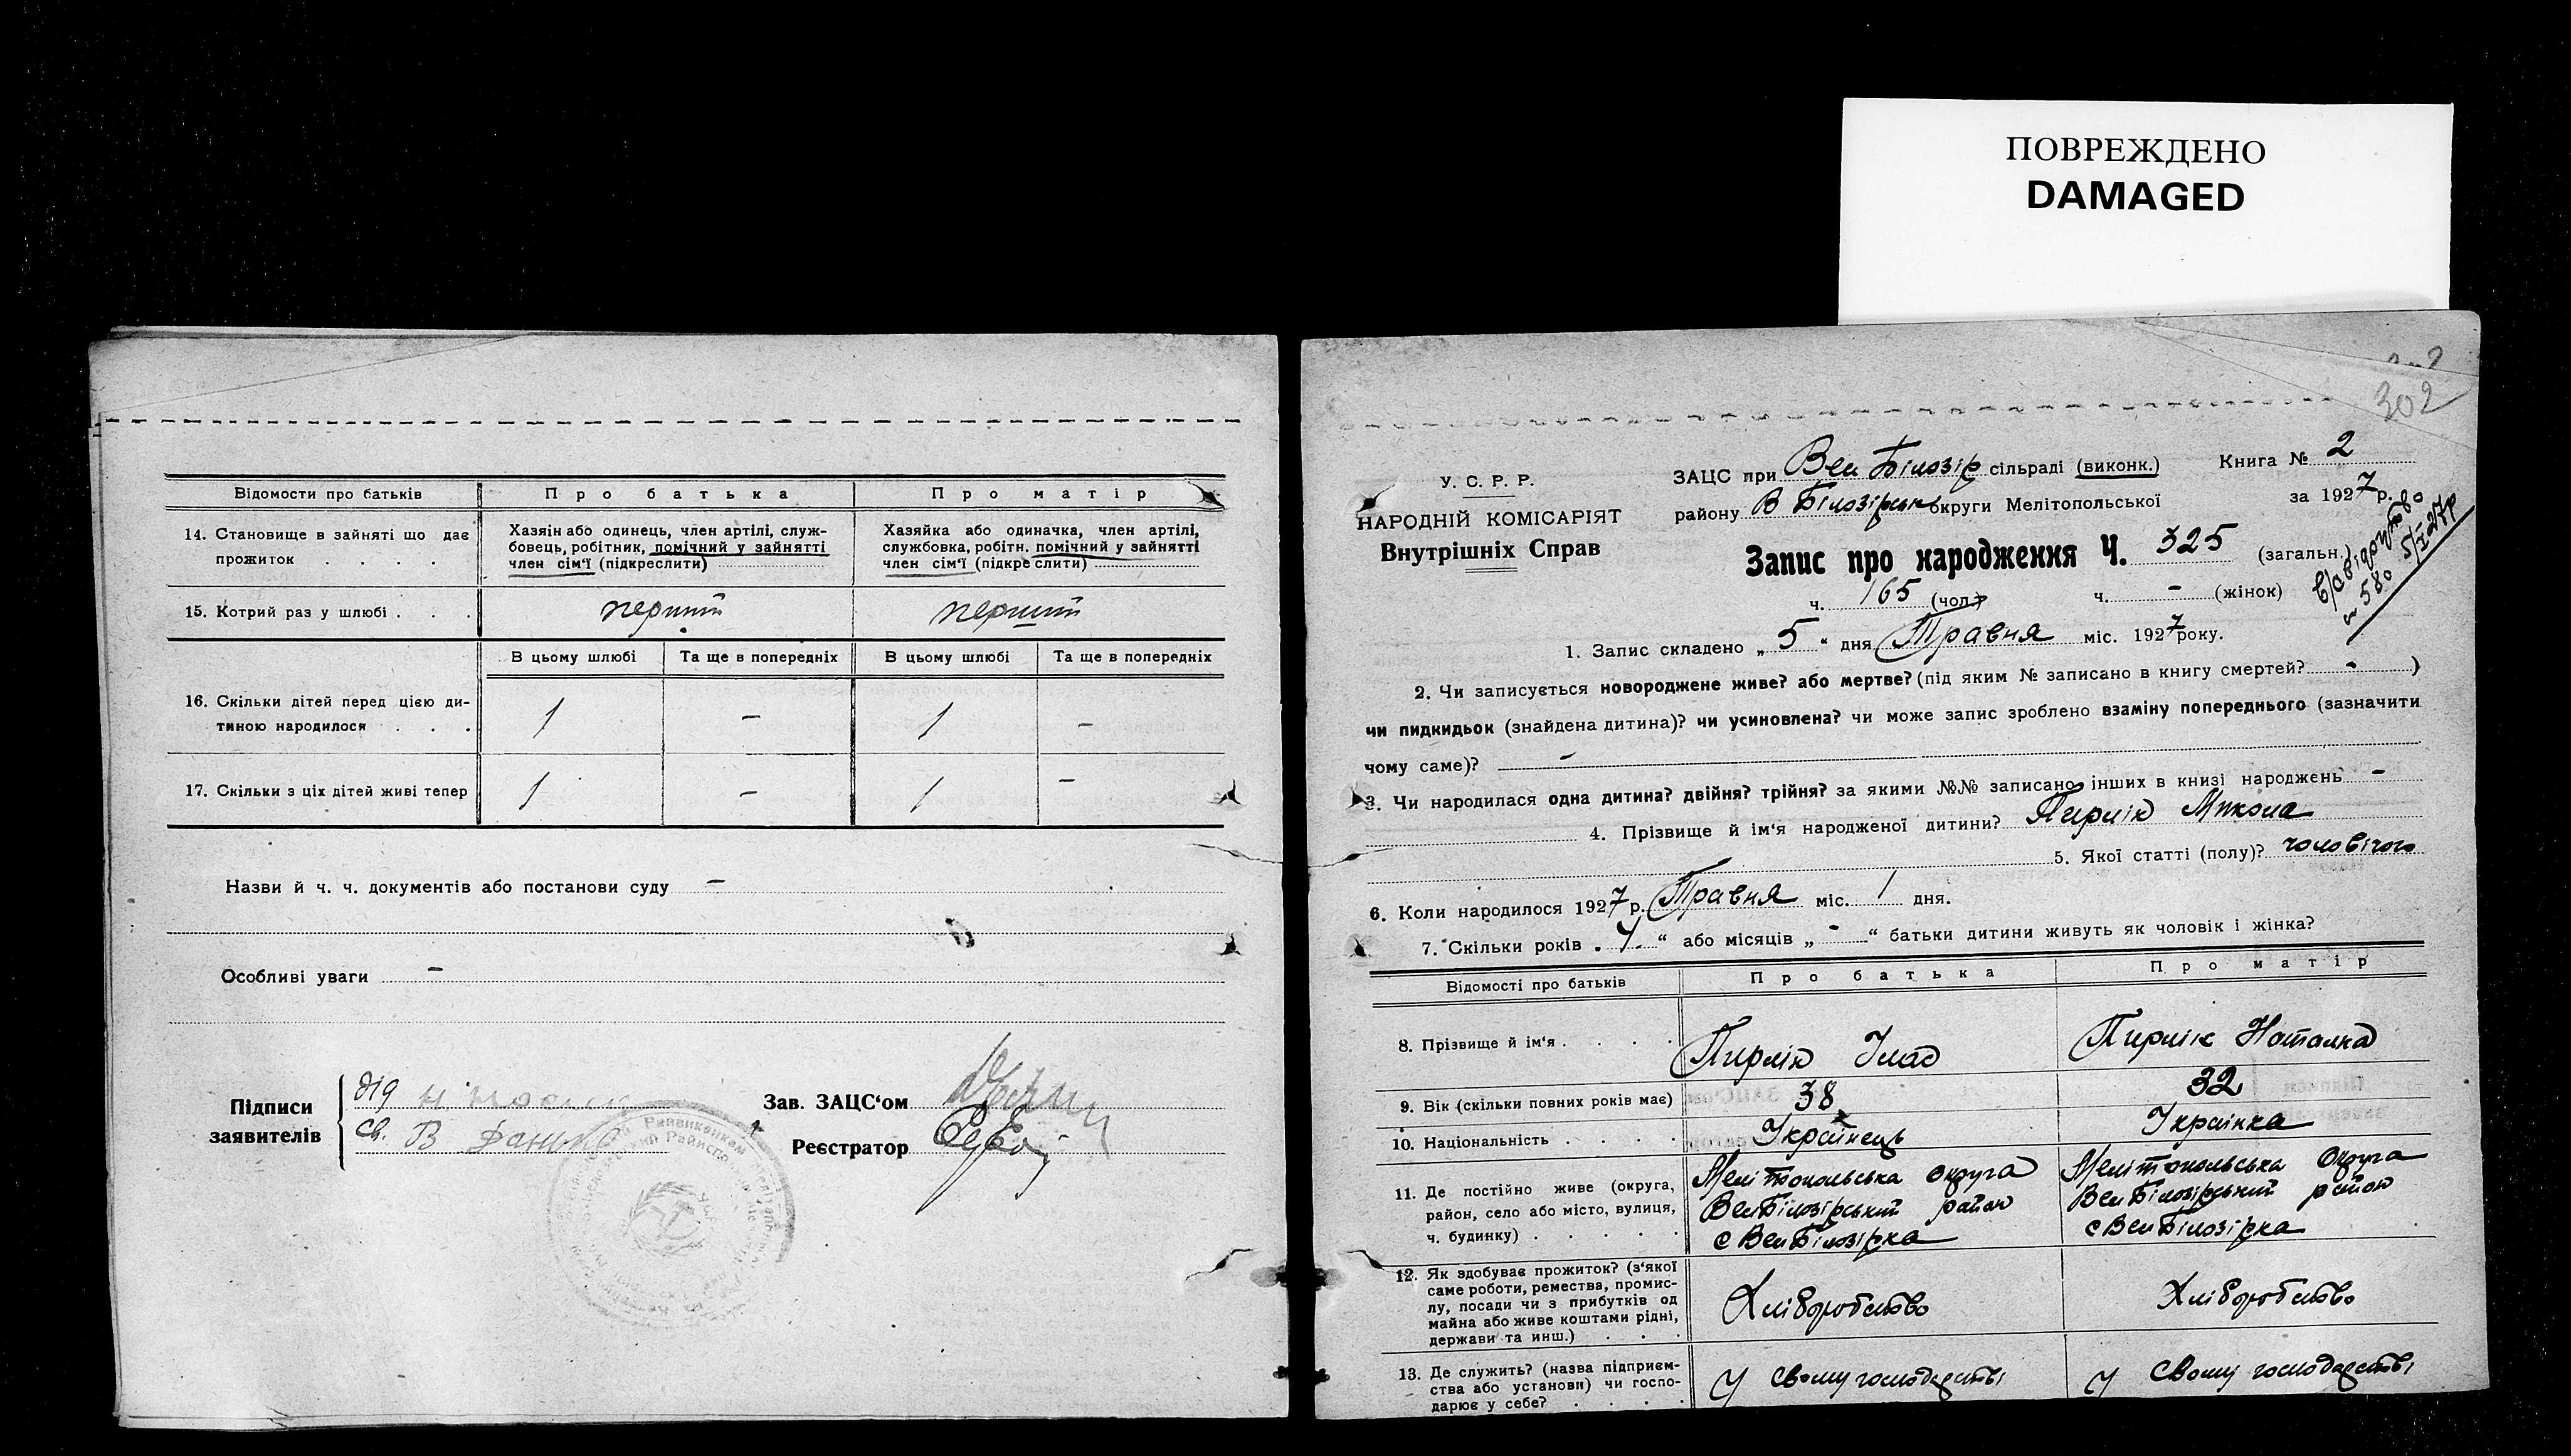 ПОВРЕЖДЕНО
DAMAGED
Відомости про батьків
Про батька
Про матір
14. Становище в зайняті що дає прожиток
Хазяін або одинець, член артілі, служ-
бовець, робітник, помічний у зайнятті
член сім‘ї (підкреслити)
Хазяйка або одиначка, член артілі,
службовка, робітн. помічний у зайнятті
член сім‘ї (підкреслити)
15. Котрий раз у шлюбі
перший
перший
В цьому шлюбі
Та ще в попередніх
В цьому шлюбі
Та ще в попередніх
16. Скільки дітей перед цією ди-
тиною народилося
1 - 1 -
17. Скільки з ціх дітей живі тепер
1 - 1 -
Назви й ч. ч. документів або постанови суду -
Особливі уваги -
Підписи
заявителів
дід
св. В
Зав. ЗАЦС‘ом
Реєстратор
302
У. С. Р. Р.
НАРОДНІЙ КОМІСАРІЯТ
Внутрішніх Справ
ЗАЦС при Вел Білозір сільраді (виконк.)
Книга № 2
району В Білозірськ округи Мелітопольської
за 1927 р.
Запис про народження Ч. 325 (загальн.)
ч. 165 (чол.) ч. - (жінок)
1. Запис складено „5“ дня Травня міс. 1927 року.
2. Чи записується новороджене живе? або мертве? (під яким № записано в книгу смертей? - )
чи пидкидьок (знайдена дитина)? чи усиновлена? чи може запис зроблено взаміну попереднього (зазначити
чому саме)? -
3. Чи народилася одна дитина? двійня? трійня? за якими №№ записано інших в книзі народжень -
4. Прізвище й ім‘я народженої дитини? Пирлік Микола
5. Якої статті (полу)? чоловічого
6. Коли народилося 1927 р. Травня міс. 1 дня.
7. Скільки років „ “ або місяців „ - “ батьки дитини живуть як чоловік і жінка?
Відомості про батьків
Про батька
Про матір
8. Прізвище й ім‘я
Пирлік Ілас
Пирлік Наталка
9. Вік (скільки повних років має)
38
32
10. Національність
Українець
Українка
11. Де постійно живе (округа,
район, село або місто, вулиця,
ч. будинку)
Мелітопольська округа
ВелБілозірський район
с ВелБілозірка
Мелітопольська Округа
ВелБілозірський район
с ВелБілозірка
12. Як здобуває прожиток? (з‘якої
саме роботи, ремества, промис-
лу, посади чи з прибутків од
майна або живе коштами рідні,
держави та инш.)
Хліборобство
Хліборобство
13. Де служить? (назва підприєм-
ства або установи) чи госпо-
дарює у себе?
У свому господарстві
У свому господарстві